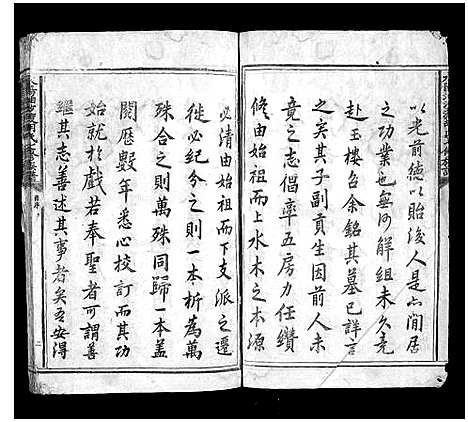 以光前德以貽後人是亦閒居
之功業也無何解組未久竟
赴玉樓召余銘其墓已詳言
之矣其子副貢生因前人未
竟之志倡率五房力任纘
修由始祖而上水木之本源
必清由始祖而下支派之遷
徙必紀分之則一本析為萬
殊合之則萬殊同歸一本蓋
閱歷數年悉心校訂而其功
始就於戲若奉聖者可謂善
繼其志善述其事者矣吾安得
二